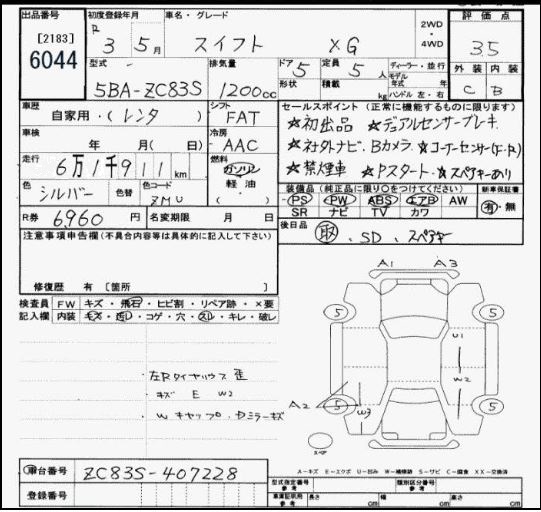 出品番号
[2183]
6044
初度登録年月
R
3 5月
車名・グレード
スイフト XG
2WD
・
4WD
評価点
3.5
外装 内装
C B
型式
5BA-ZC83S
排気量
1200cc
ドア 5
形状
定員 5人
積載 kg
ディーラー・並行
モデル
年式 年
ハンドル 左・右
車歴
自家用・(レンタ)
シフト
FAT
車検
年 月( 日)
冷房
AAC
走行
6万1千911km
燃料
ガソリン
軽油
・
( )
色
シルバー
色替
色コード
ZMU
R券 6960円
名変期限 月 日
セールスポイント (正常に機能するものに限ります)
★初出品 ★デュアルセンサーブレーキ
★社外ナビ、Bカメラ ★コーナーセンサー(F・R)
★禁煙車 ★Pスタート ★スペアキーあり
装備品(純正品に限り○をつけてください)
新車保証書
PS PW ABS エアB AW
SR ナビ TV カワ
有・無
後日品
取、SD、スペアキー
注意事項申告欄(不具合内容等は具体的に記入して下さい)
修復歴 有 [箇所 ]
検査員
記入欄
FW キズ・飛石・ヒビ割・リペア跡・×要
内装 キズ・汚レ・コゲ・穴・スレ・キレ・破レ
・左Rタイヤハウス歪
・キズ E W2
・Wキャップ・Dミラーキズ
A1 A3
5 5
W1
W2
A2 5 W3 5
スペア
A-キズ E-エクボ U-凹み W-補修跡 S-サビ C-腐食 XX-交換済
車台番号
ZC83S-407228
登録番号
型式指定番号
参考
類別区分番号
参考
車庫証明用
参考
長さ cm
幅 cm
高さ cm